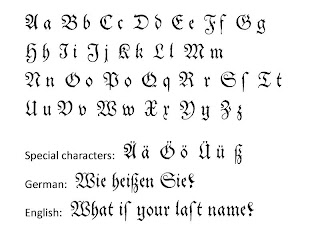 Aa Bb Cc Dd Ee Ff Gg
Hh Ii Jj Kk Ll Mm
Nn Oo Pp Qq Rr Sſ Tt
Uu Vv Ww Xx Yy Zz
Special characters: Ää Öö Üü ß
German: Wie heißen Sie?
English: What iſ your laſt name?